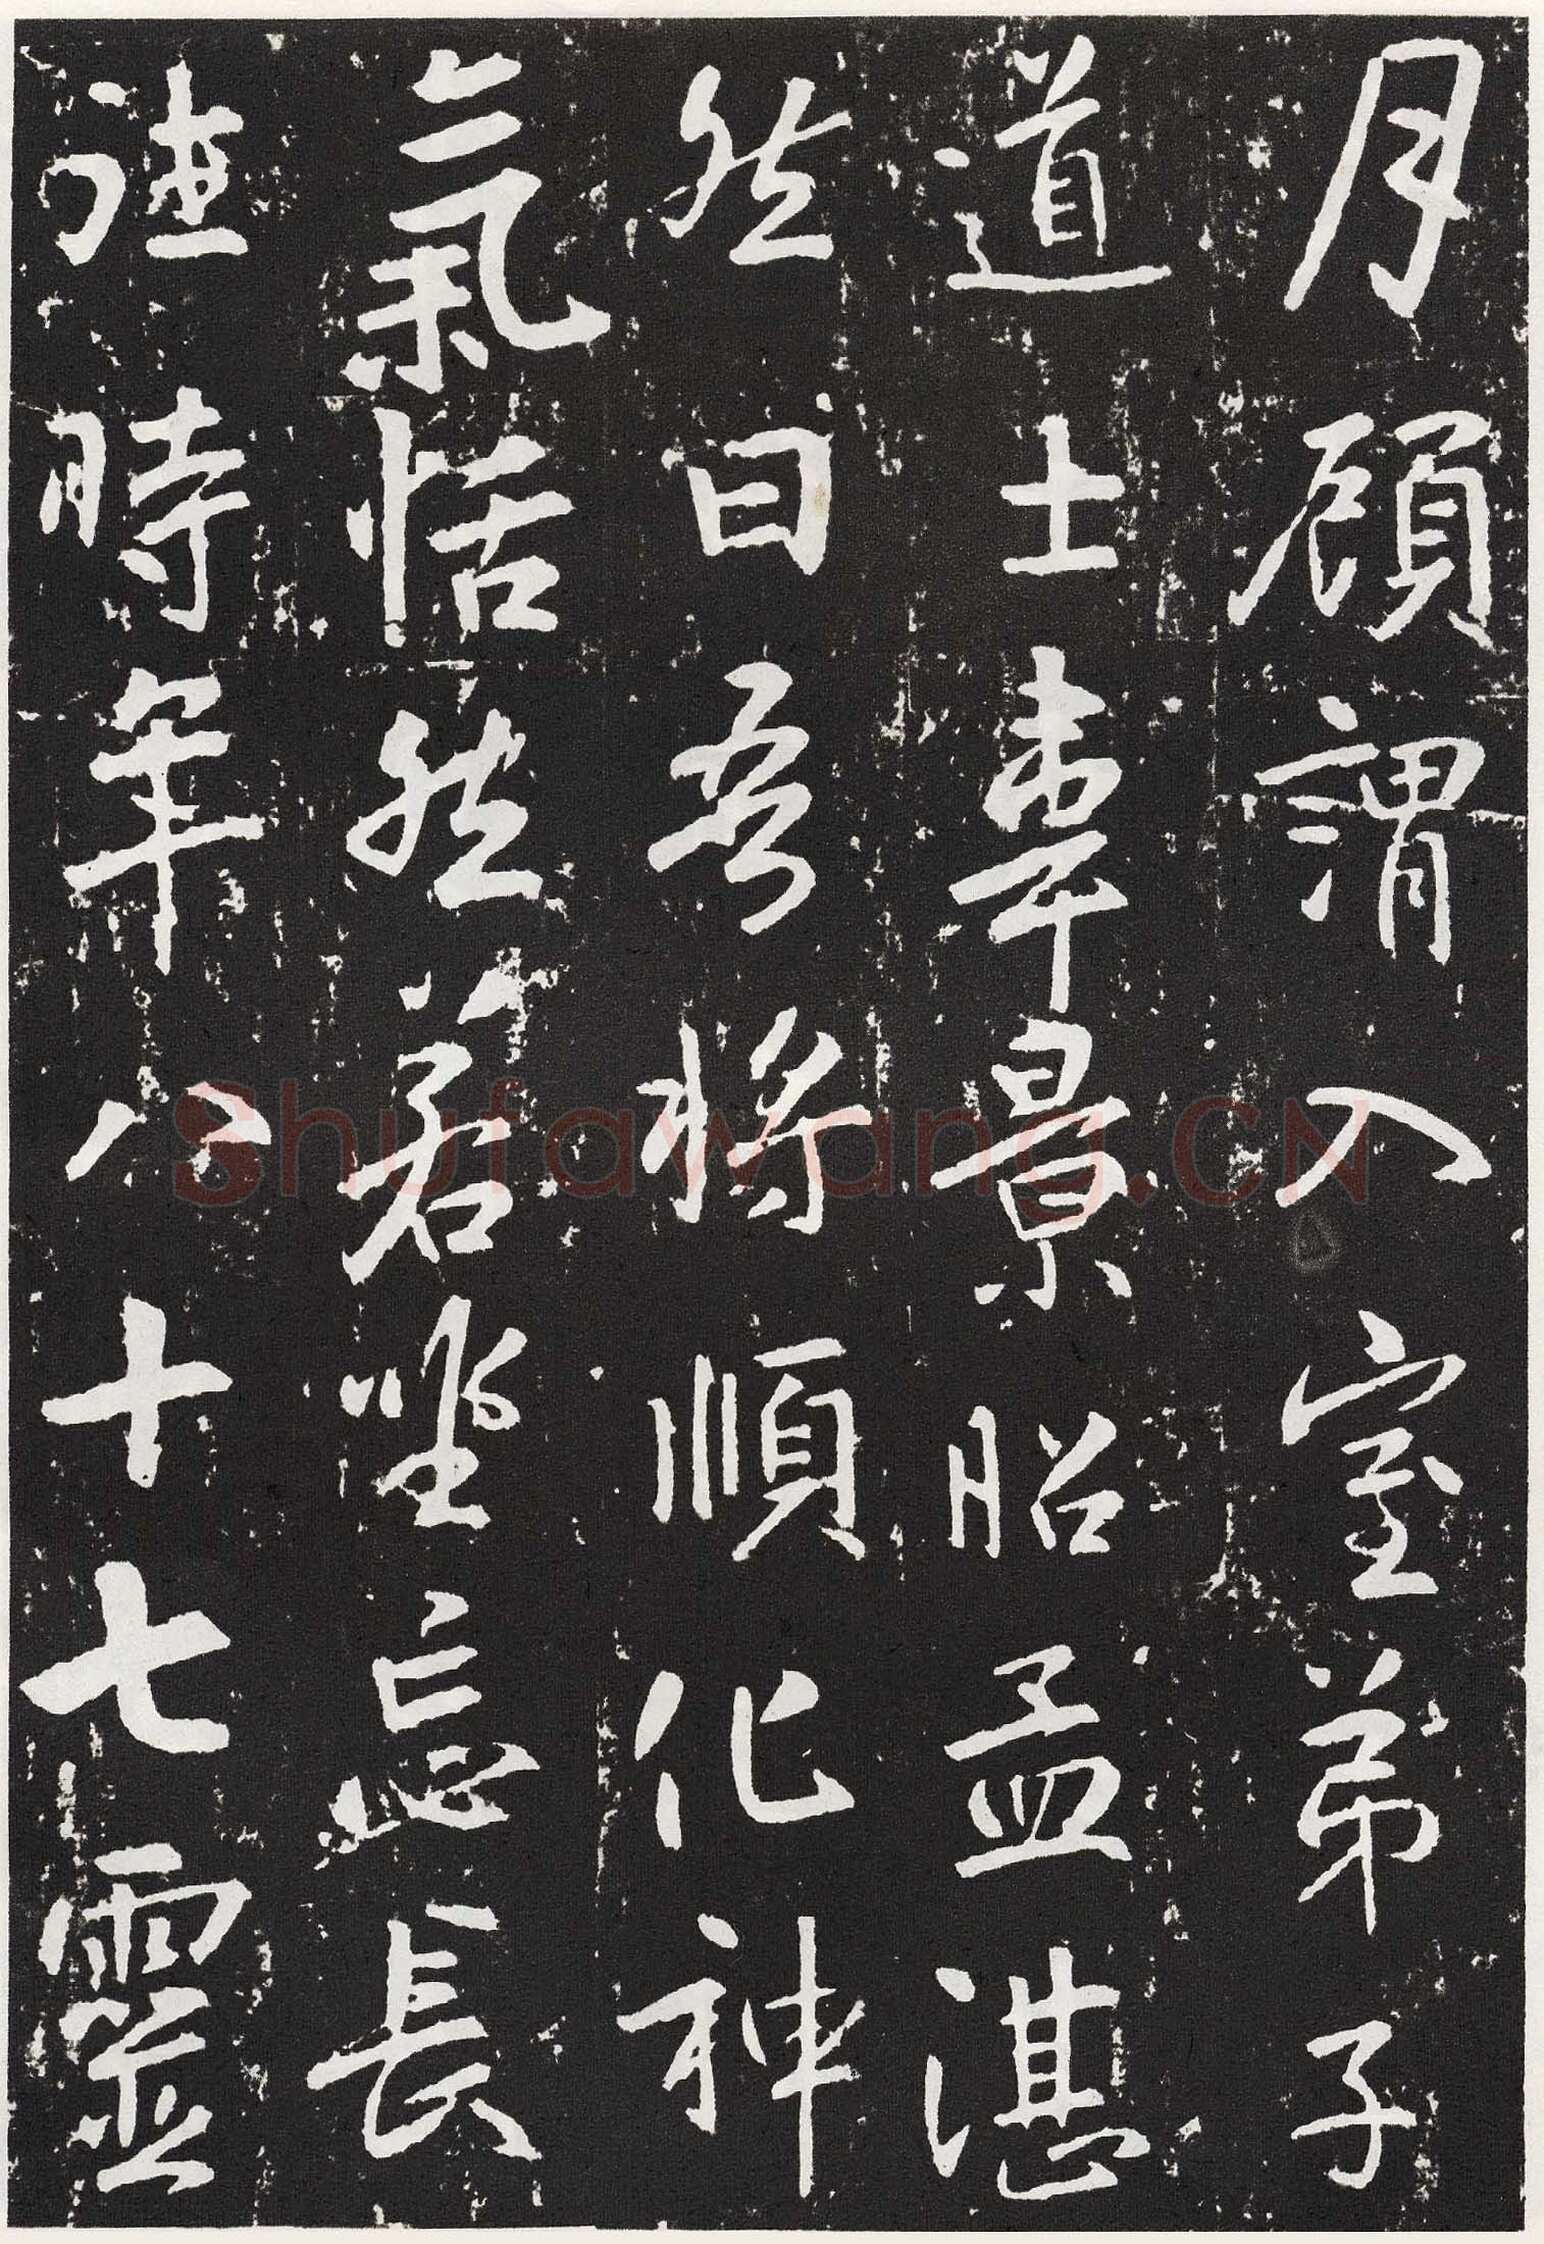 月顧謂入室弟子
道士韋景昭孟湛
然曰吾將順化神
氣恬然若坐忘長
往時年八十七靈
Shufawang.CN